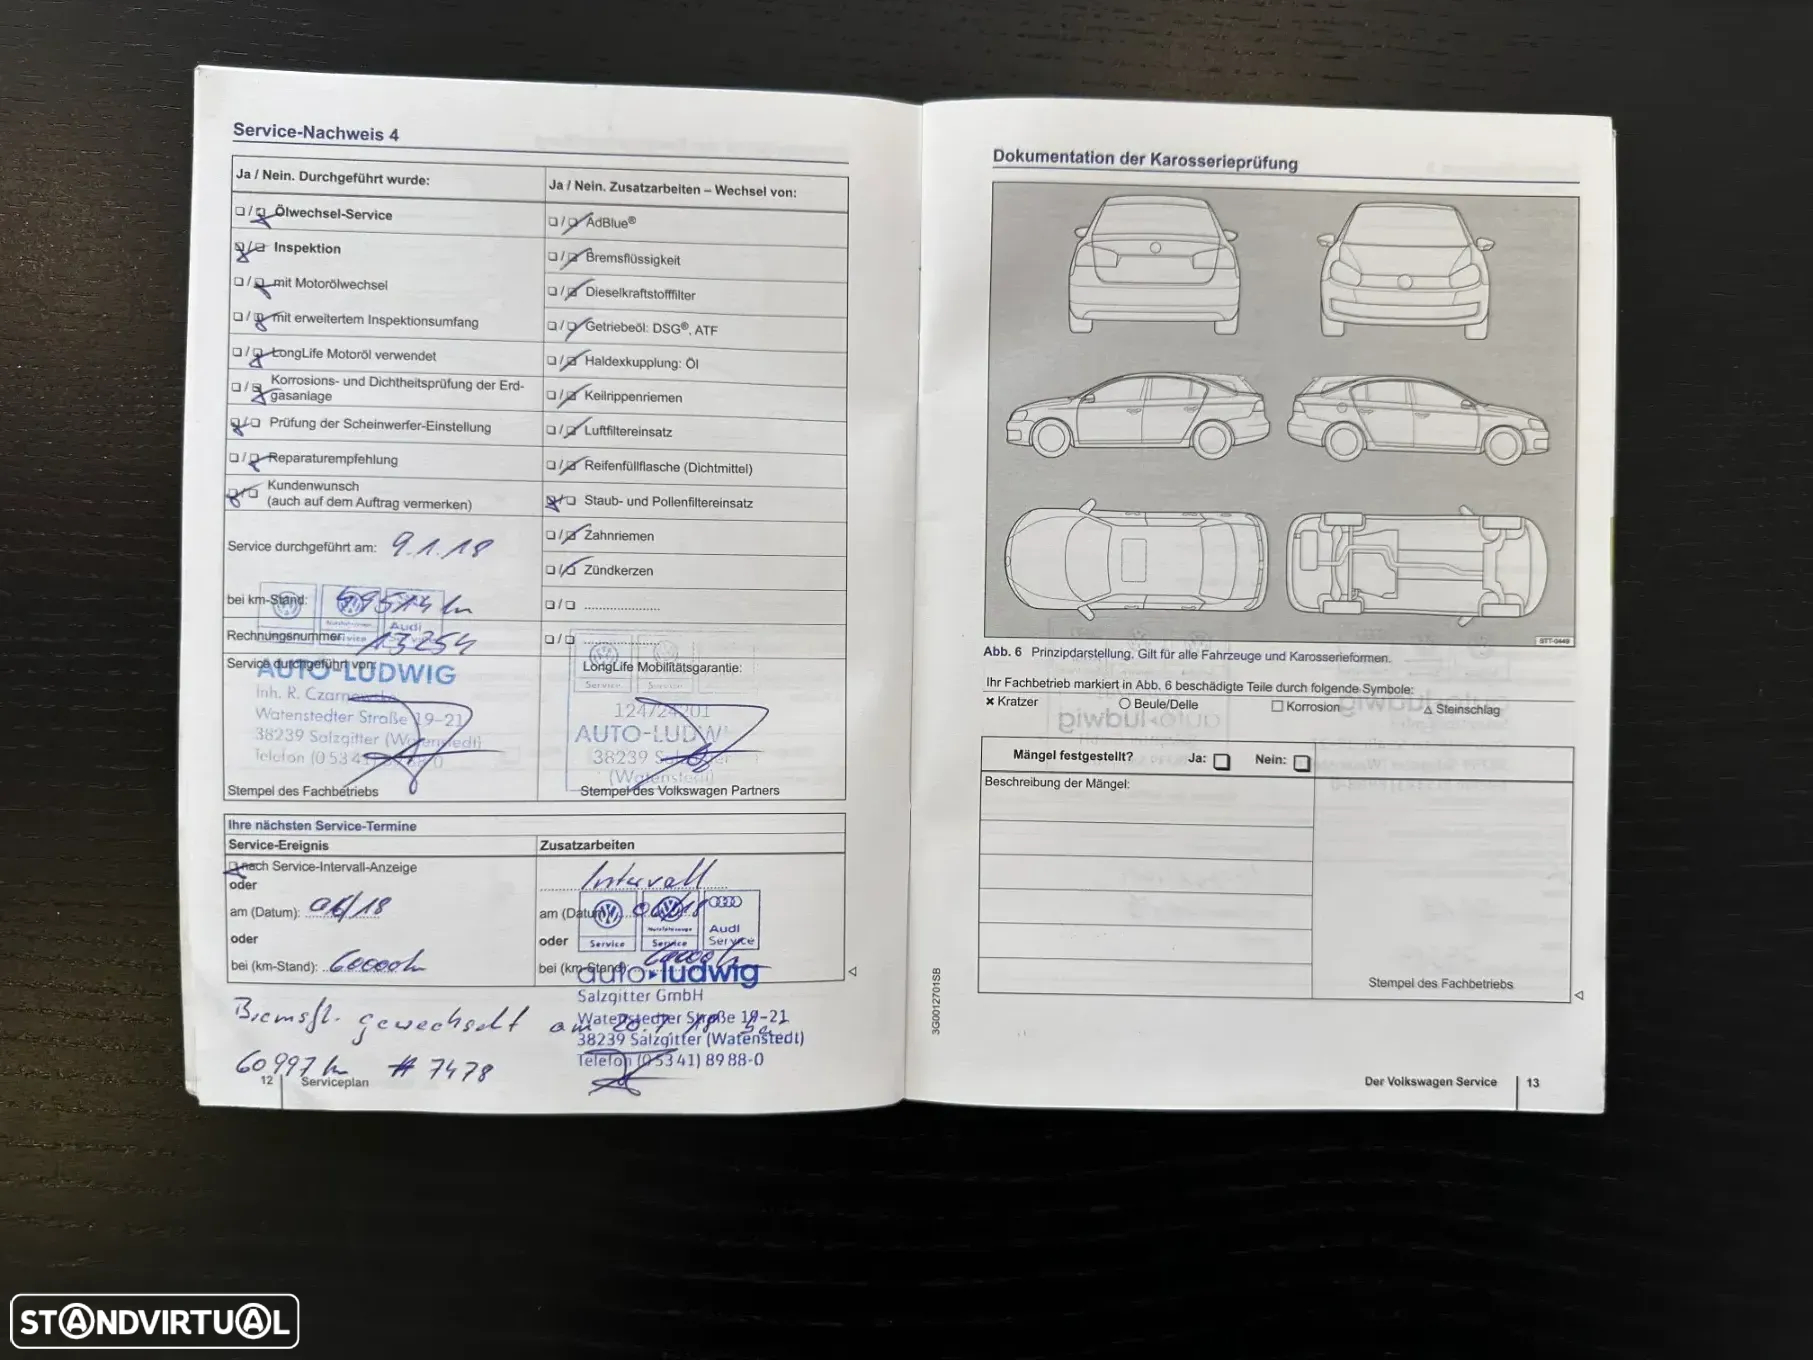 Service-Nachweis 4
Ja / Nein. Durchgeführt wurde:
Ölwechsel-Service
Inspektion
mit Motorölwechsel
mit erweitertem Inspektionsumfang
LongLife Motoröl verwendet
Korrosions- und Dichtheitsprüfung der Erd-
gasanlage
Prüfung der Scheinwerfer-Einstellung
Reparaturempfehlung
Kundenwunsch
(auch auf dem Auftrag vermerken)
Service durchgeführt am: 9.1.18
bei km-Stand: 59514 km
Rechnungsnummer: 13254
Service durchgeführt von:
AUTO-LUDWIG
Inh. R.
Watenstedter Straße 19–21
38239 Salzgitter (Watenstedt)
Telefon
Stempel des Fachbetriebs
Ja / Nein. Zusatzarbeiten – Wechsel von:
AdBlue®
Bremsflüssigkeit
Dieselkraftstofffilter
Getriebeöl: DSG®, ATF
Haldexkupplung: Öl
Keilrippenriemen
Luftfiltereinsatz
Reifenfüllflasche (Dichtmittel)
Staub- und Pollenfiltereinsatz
Zahnriemen
Zündkerzen
LongLife Mobilitätsgarantie:
124/24201
AUTO-LUDWIG
38239 Salzgitter
(Watenstedt)
Stempel des Volkswagen Partners
Ihre nächsten Service-Termine
Service-Ereignis
nach Service-Intervall-Anzeige
oder
am (Datum):
oder
bei (km-Stand): 60000 km
Zusatzarbeiten
Intervall
am (Datum)
oder
bei (km-Stand):
Service
Service
Audi
Service
auto ludwig
Salzgitter GmbH
Watenstedter Straße 19–21
38239 Salzgitter (Watenstedt)
Telefon (0 53 41) 89 88-0
Bremsfl. gewechselt am 20.7.18
60.997 km # 7478
12 Serviceplan
Dokumentation der Karosserieprüfung
STT-0449
Abb. 6 Prinzipdarstellung. Gilt für alle Fahrzeuge und Karosserieformen.
Ihr Fachbetrieb markiert in Abb. 6 beschädigte Teile durch folgende Symbole:
Kratzer Beule/Delle Korrosion Steinschlag
Mängel festgestellt? Ja: Nein:
Beschreibung der Mängel:
Stempel des Fachbetriebs
3G0012701SB
Der Volkswagen Service 13
STANDVIRTUAL